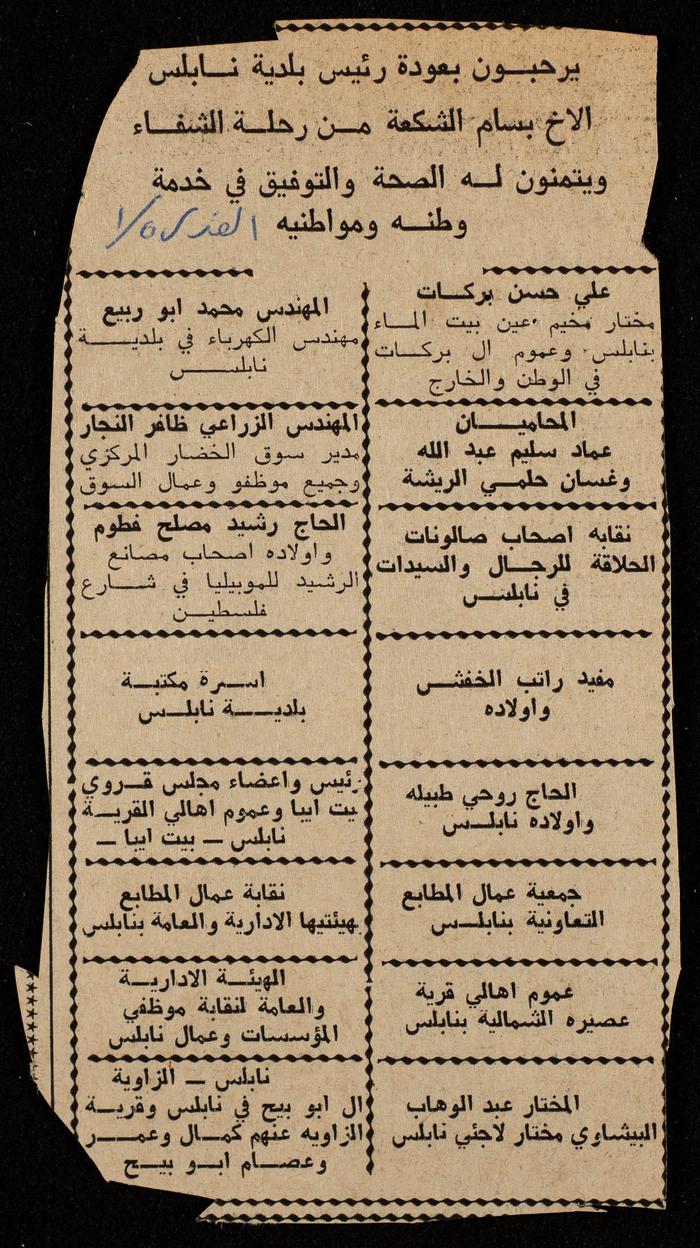 يرحبون بعودة رئيس بلدية نابلس
الاخ بسام الشكعة من رحلة الشفاء
ويتمنون له الصحة والتوفيق في خدمة
وطنه ومواطنيه
علي حسن بركات
مختار مخيم عين بيت الماء
بنابلس وعموم ال بركات
في الوطن والخارج
المحاميان
عماد سليم عبد الله
وغسان حلمي الريشة
نقابه اصحاب صالونات
الحلاقة للرجال والسيدات
في نابلس
مفيد راتب الخفش
واولاده
الحاج روحي طبيله
واولاده نابلس
جمعية عمال المطابع
التعاونية بنابلس
عموم اهالي قرية
عصيره الشمالية بنابلس
المختار عبد الوهاب
البيشاوي مختار لاجئي نابلس
المهندس محمد ابو ربيع
مهندس الكهرباء في بلدية
نابلس
المهندس الزراعي ظافر النجار
مدير سوق الخضار المركزي
وجميع موظفو وعمال السوق
الحاج رشيد مصلح فطوم
واولاده اصحاب مصانع
الرشيد للموبيليا في شارع
فلسطين
اسرة مكتبة
بلدية نابلس
رئيس واعضاء مجلس قروي
يت ايبا وعموم اهالي القرية
نابلس — بيت ايبا —
نقابة عمال المطابع
بهيئتيها الادارية والعامة بنابلس
الهيئة الادارية
والعامة لنقابة موظفي
المؤسسات وعمال نابلس
نابلس — الزاوية
ال ابو بيح في نابلس وقرية
الزاويه عنهم كمال وعمر
وعصام ابو بيح